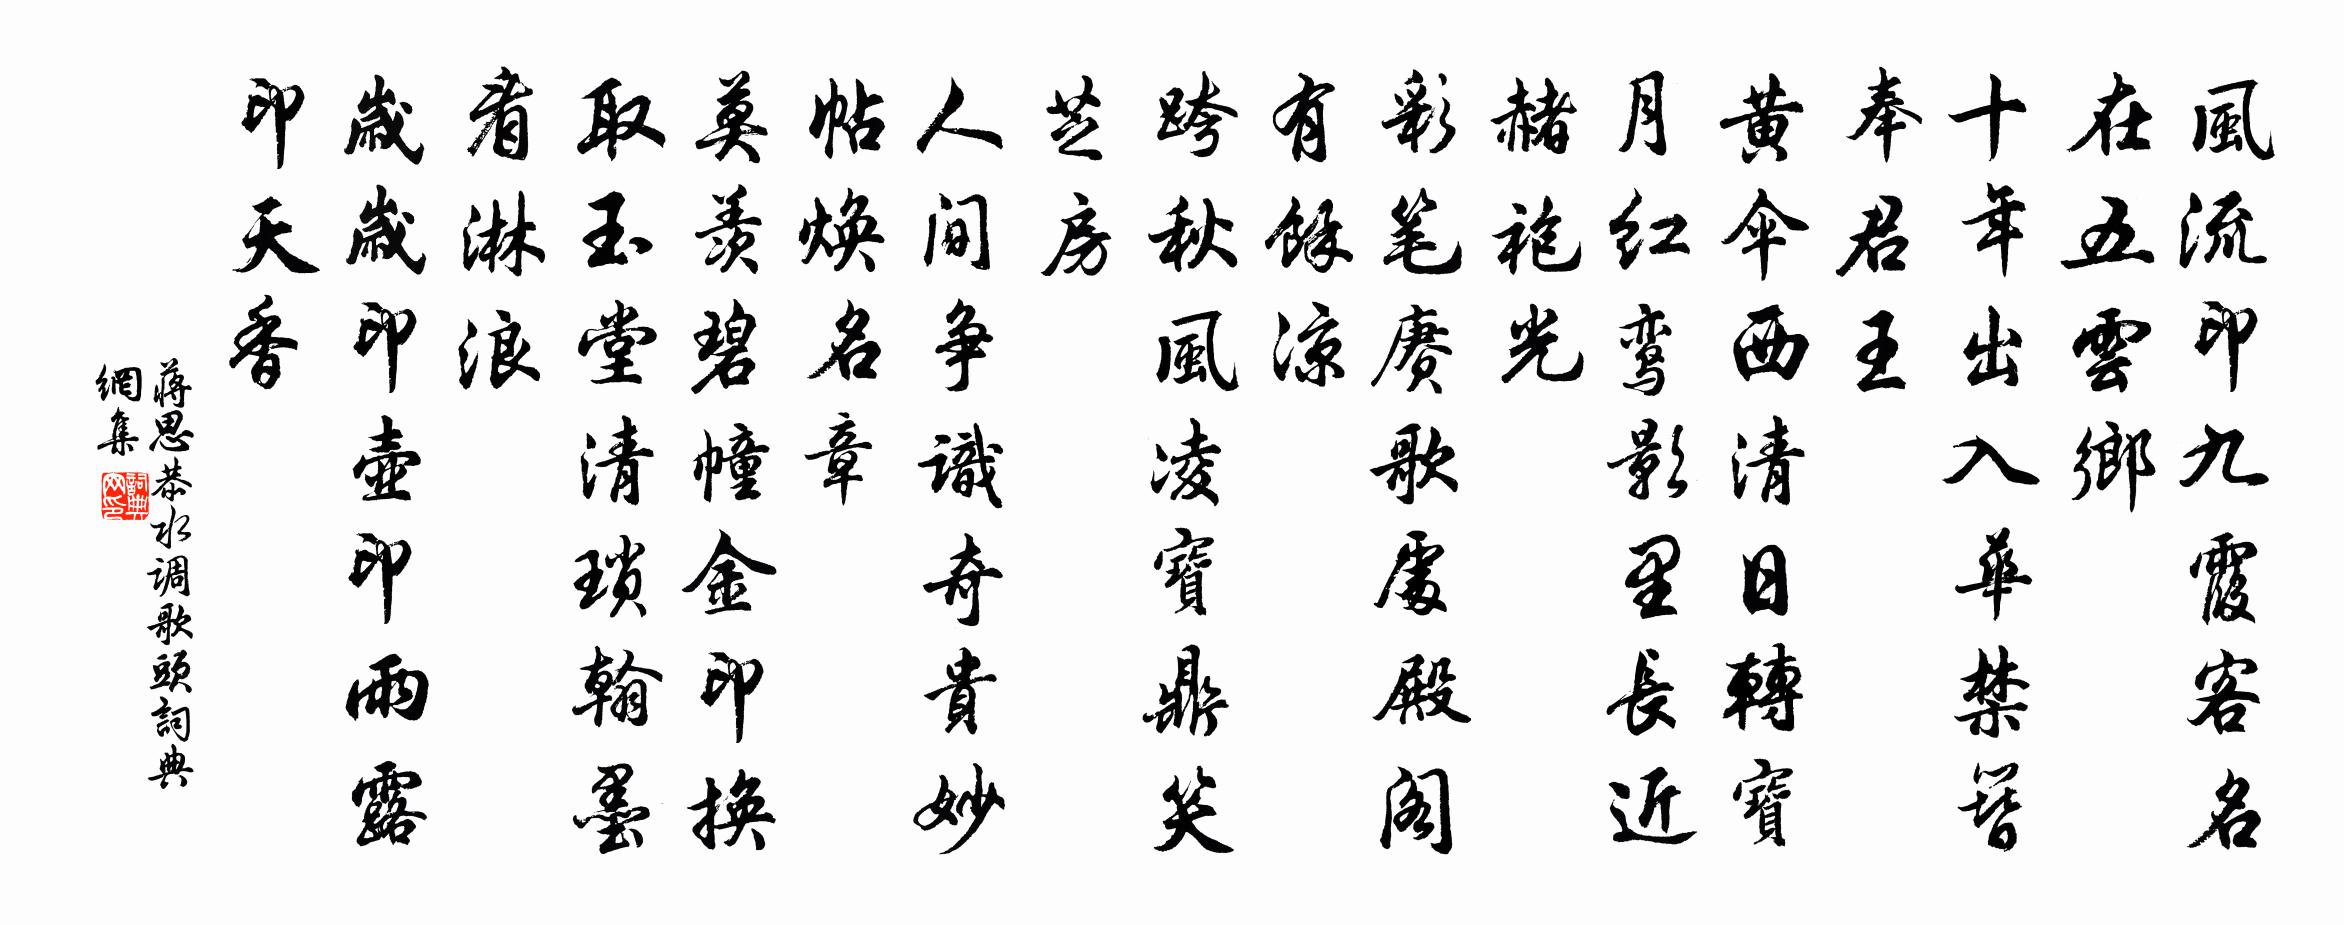 風流印九霞客名
在五雲鄉
十年出入華禁簪
奉君王
黄傘西清日轉寶
月红鸾影里長近
赭袍光
彩笔赓歌處殿阁
有餘涼
跨秋風凌寶鼎笑
芝房
人间争識奇貴妙
帖焕名章
莫羨碧幢金印换
取玉堂清琐翰墨
看淋浪
歲歲印壺印雨露
印天香
蔣思恭水调歌頭詞典
網集
詞典
网印